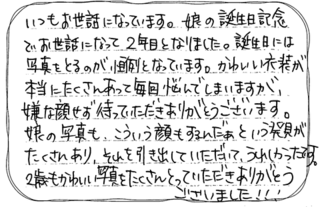 いつもお世話になっています。娘の誕生日記念
でお世話になって2年目となりました。誕生日には
写真をとるのが、恒例となっています。かわいい衣装が
本当にたくさんあって毎回悩んでしまいますが、
嫌な顔せず待っていただきありがとうございます。
娘の写真も、こういう顔もするんだぁという発見が
たくさんあり、それを引き出していただいて、うれしかったです。
2歳もかわいい写真をたくさんとっていただきありがとう
ございました!!!